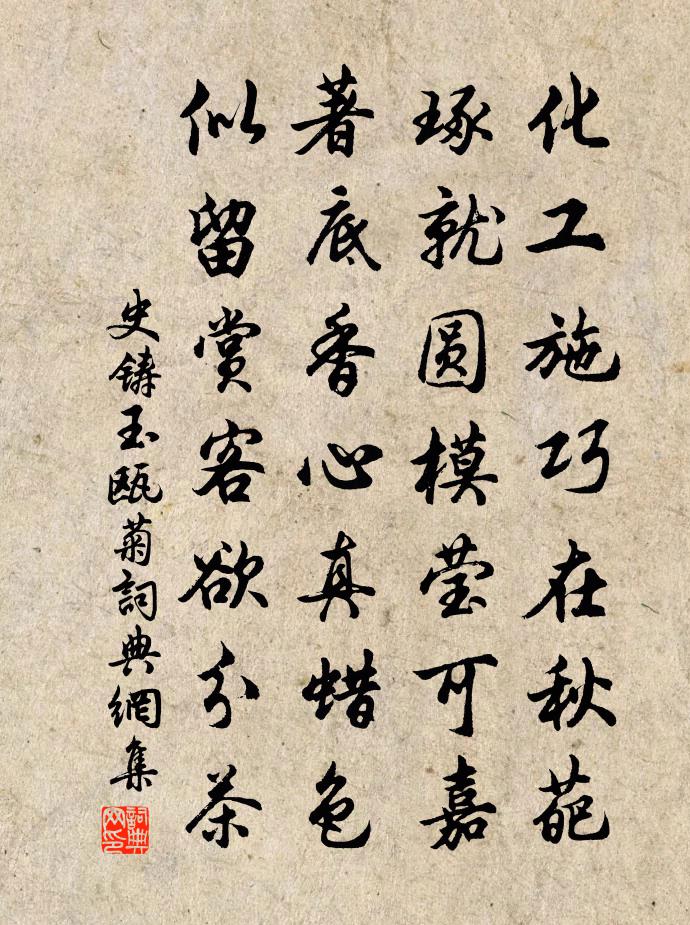 化工施巧在秋葩
琢就圆模莹可嘉
著底香心真蜡色
似留賞客欲分茶
史鑄玉甌菊詞典網集
詞典网印